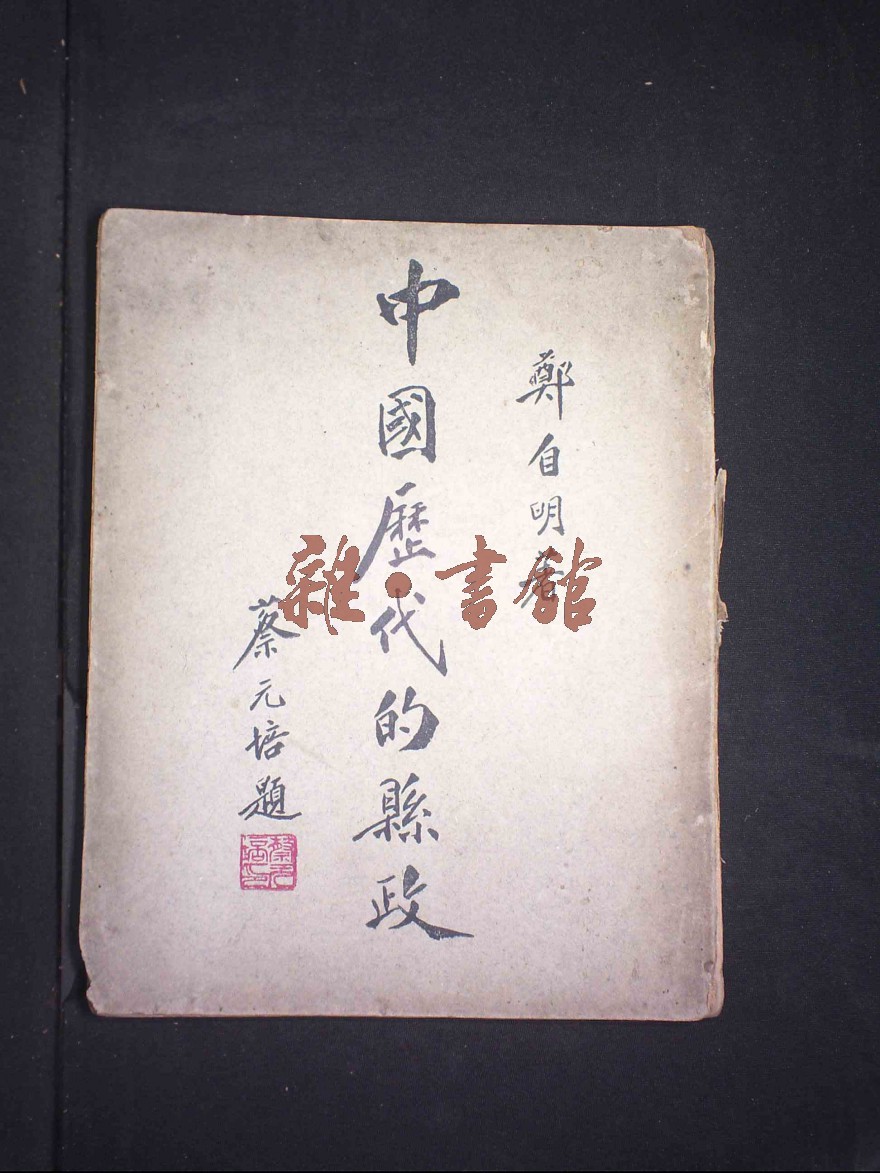 鄭自明著
中國歷代的縣政
蔡元培題
蔡元培印
雜·書館